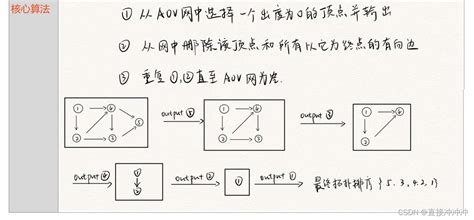 核心算法
① 从AOV网中选择一个出度为0的顶点并输出
② 从网中删除该顶点和所有以它为终点的有向边
③ 重复①,②直至AOV网为空.
① ④ ② ③ ⑤
output ⑤
① ④ ② ③
output ③
① ④ ②
output ④
① ②
output ②
①
output ①
最终拓扑排序 {5.3.4.2.1}
CSDN @直接冲冲冲